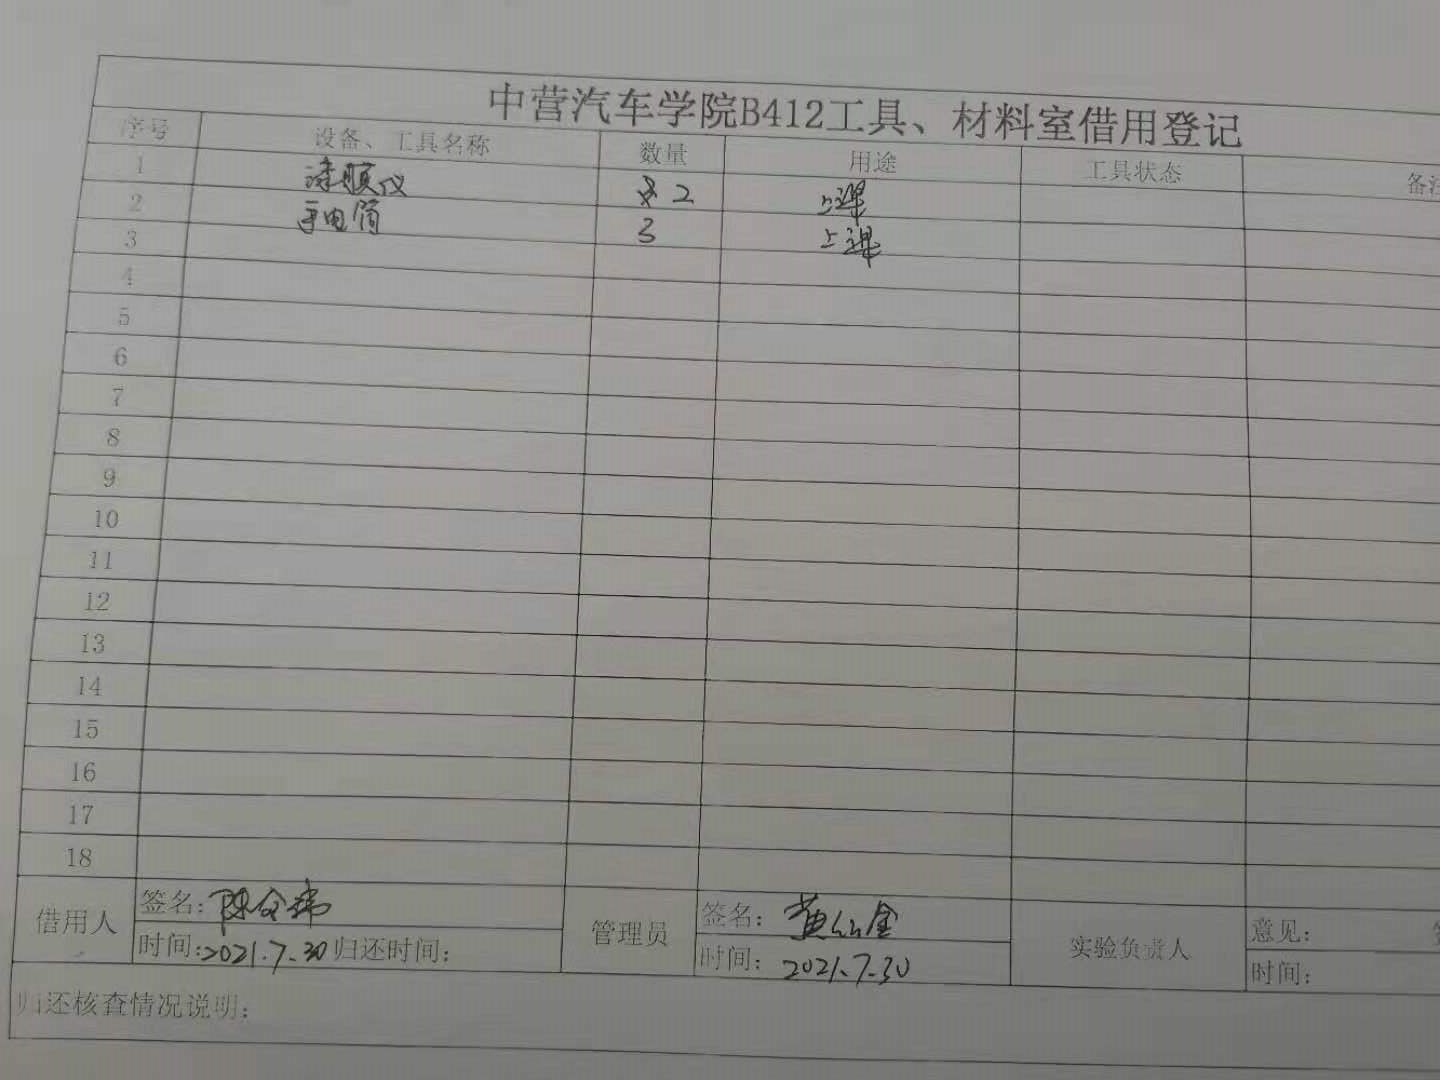 中营汽车学院B412工具、材料室借用登记
序号 设备、工具名称 数量 用途 工具状态 备注
1 漆膜仪 2 上课
2 手电筒 3 上课
3
4
5
6
7
8
9
10
11
12
13
14
15
16
17
18
借用人 签名: 管理员 签名: 实验负责人 意见:
时间:2021.7.30 归还时间: 时间: 2021.7.30 时间:
归还核查情况说明: